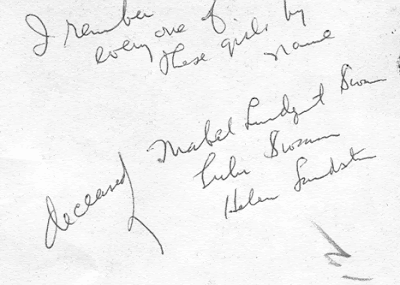 I remember
everyone of
these girls by
name
Mabel Lundquist Swan
Lulu Swanson
Helen Lundstrom
deceased